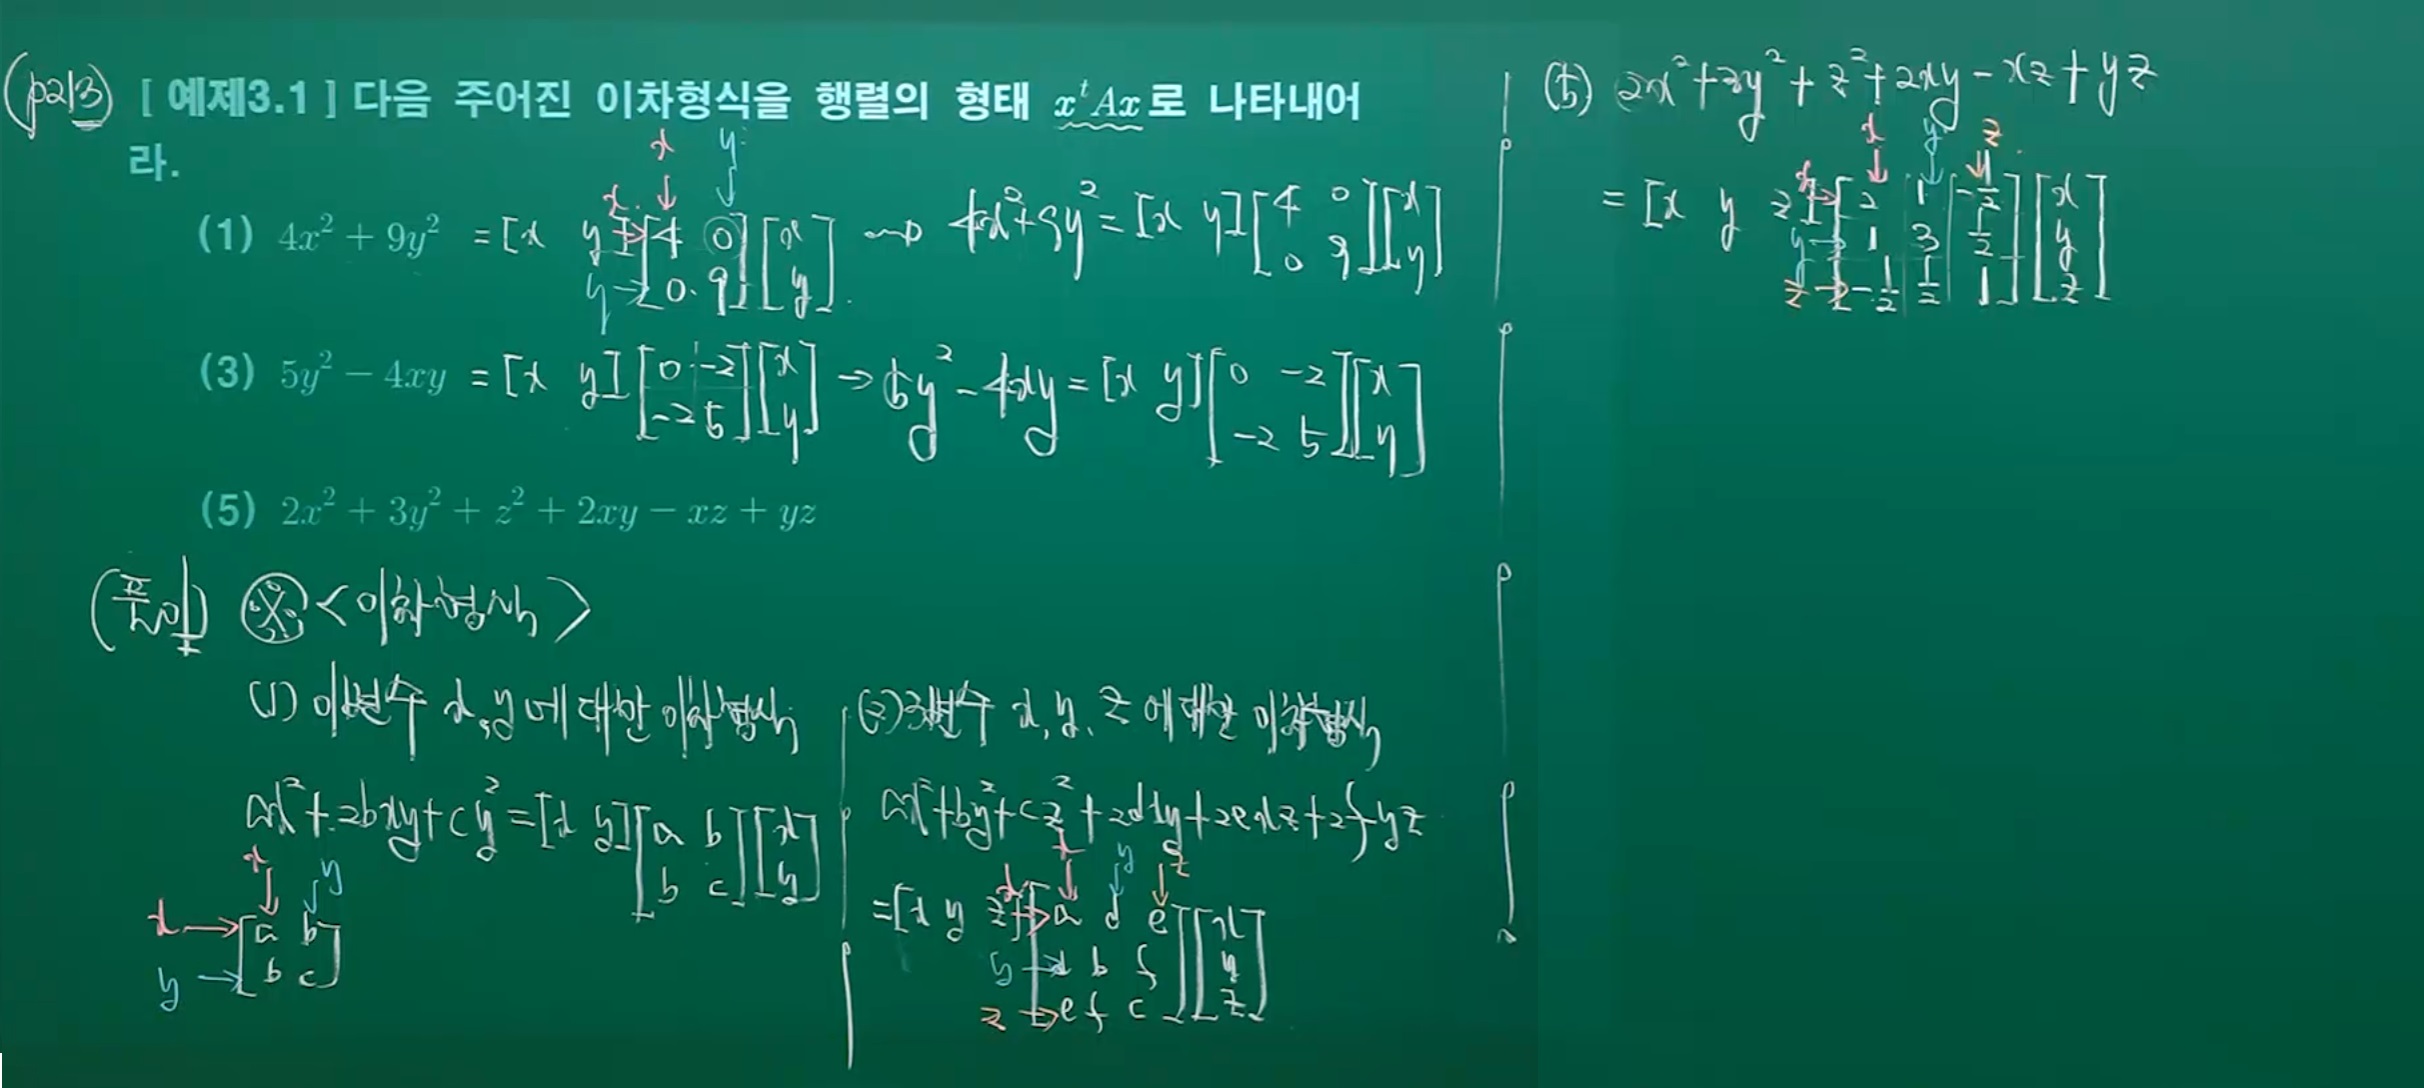 (p213) [ 예제3.1 ] 다음 주어진 이차형식을 행렬의 형태 xᵗAx로 나타내어
라.
x y
x
(1) 4x² + 9y² = [x y] [4 0] [x] → 4x²+9y² = [x y] [4 0] [x]
y → [0 9] [y] [0 9] [y]
(3) 5y² − 4xy = [x y] [0 -2] [x] → 5y² - 4xy = [x y] [0 -2] [x]
[-2 5] [y] [-2 5] [y]
(5) 2x² + 3y² + z² + 2xy − xz + yz
(풀이) ※ <이차형식>
(1) 이변수 x, y에 대한 이차형식
ax²+2bxy+cy² = [x y] [a b] [x]
[b c] [y]
x y
x → [a b]
y → [b c]
(2) 3변수 x, y, z에 대한 이차형식
ax²+by²+cz²+2dxy+2exz+2fyz
x y z
= [x y z] x → [a d e] [x]
y → [d b f] [y]
z → [e f c] [z]
(5) 2x²+3y²+z²+2xy-xz+yz
x y z
= [x y z] x → [2 1 -1/2] [x]
y → [1 3 1/2] [y]
z → [-1/2 1/2 1] [z]